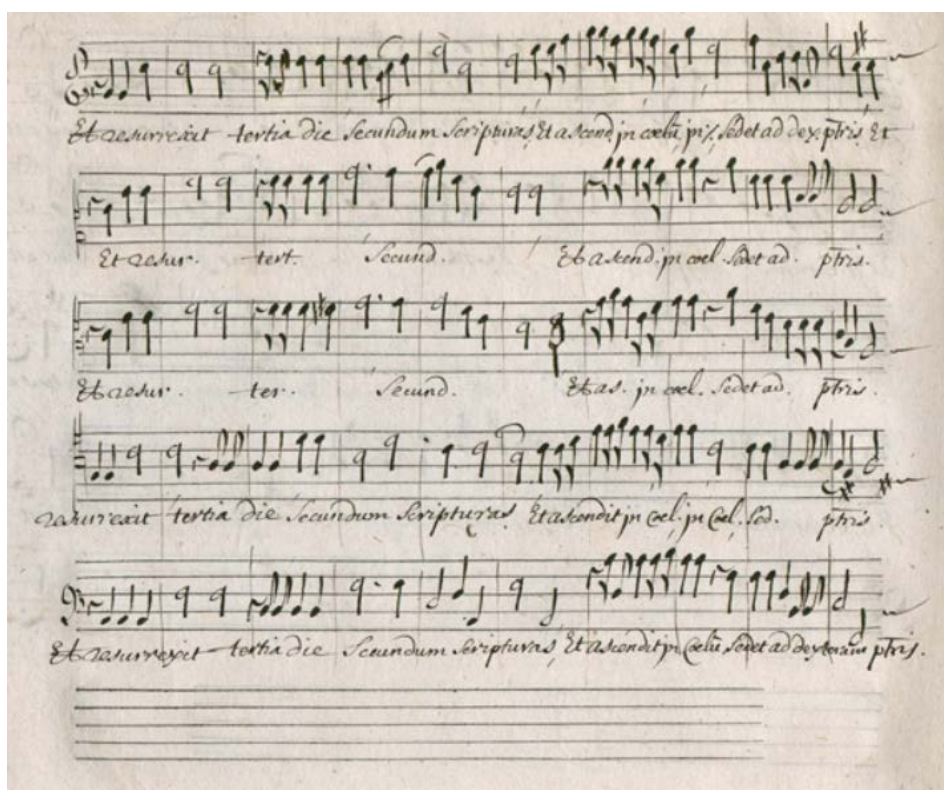 Et resurrexit tertia die Secundum Scripturas Et ascend. in coelũ, in ꝶ. Sedet ad dex. ptris Et
Et resur. tert. Secund. Et ascend. in coel. Sedet ad. ptris.
Et resur. ter. Secund. Et as. in coel. Sedet ad. ptris.
resurrexit tertia die Secundum Scripturas Et ascendit in Coel. in Coel. Sed. ptris.
Et resurrexit tertia die Secundum Scripturas, Et ascendit in Coelũ Sedet ad dexteram ptris.